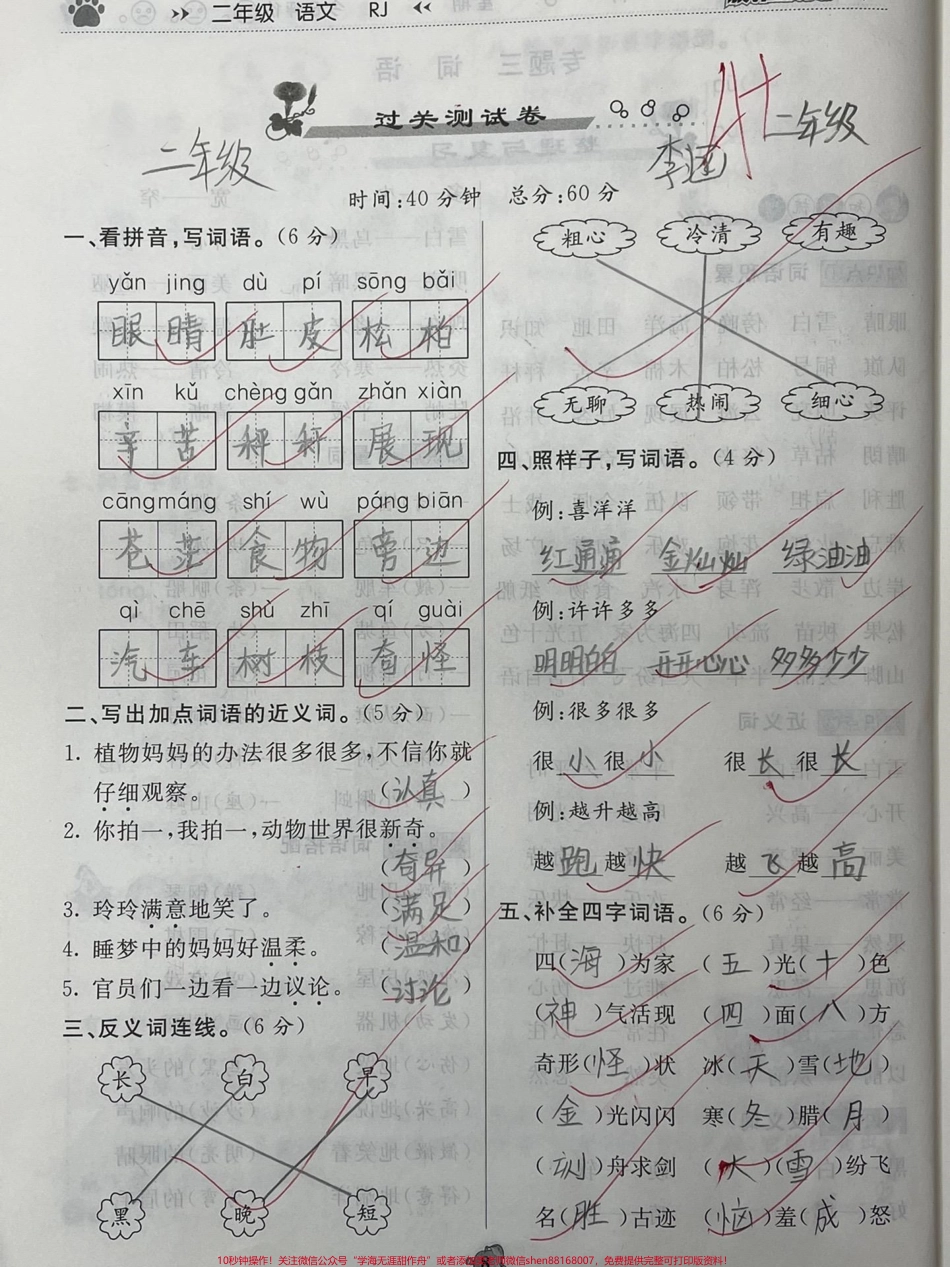 二年级 语文 RJ
过关测试卷
二年级
二年级
时间:40分钟 总分:60分
一、看拼音,写词语。(6分)
yǎn jīng dù pí sōng bǎi
眼 睛 肚 皮 松 柏
xīn kǔ chèng gǎn zhǎn xiàn
辛 苦 秤 杆 展 现
cāng máng shí wù páng biān
苍 茫 食 物 旁 边
qì chē shù zhī qí guài
汽 车 树 枝 奇 怪
二、写出加点词语的近义词。(5分)
1. 植物妈妈的办法很多很多,不信你就
仔细观察。 (认真)
2. 你拍一,我拍一,动物世界很新奇。
(奇异)
3. 玲玲满意地笑了。 (满足)
4. 睡梦中的妈妈好温柔。 (温和)
5. 官员们一边看一边议论。 (讨论)
三、反义词连线。(6分)
长 白 早
黑 晚 短
粗心 冷清 有趣
无聊 热闹 细心
四、照样子,写词语。(4分)
例:喜洋洋
红通通 金灿灿 绿油油
例:许许多多
明明白白 开开心心 多多少少
例:很多很多
很小很小 很长很长
例:越升越高
越跑越快 越飞越高
五、补全四字词语。(6分)
四(海)为家 (五)光(十)色
(神)气活现 (四)面(八)方
奇形(怪)状 冰(天)雪(地)
(金)光闪闪 寒(冬)腊(月)
(刻)舟求剑 (大)(雪)纷飞
名(胜)古迹 (恼)羞(成)怒
10秒钟操作!关注微信公众号“学海无涯甜作舟”或者添加老师微信shen88168007,免费提供完整可打印版资料!